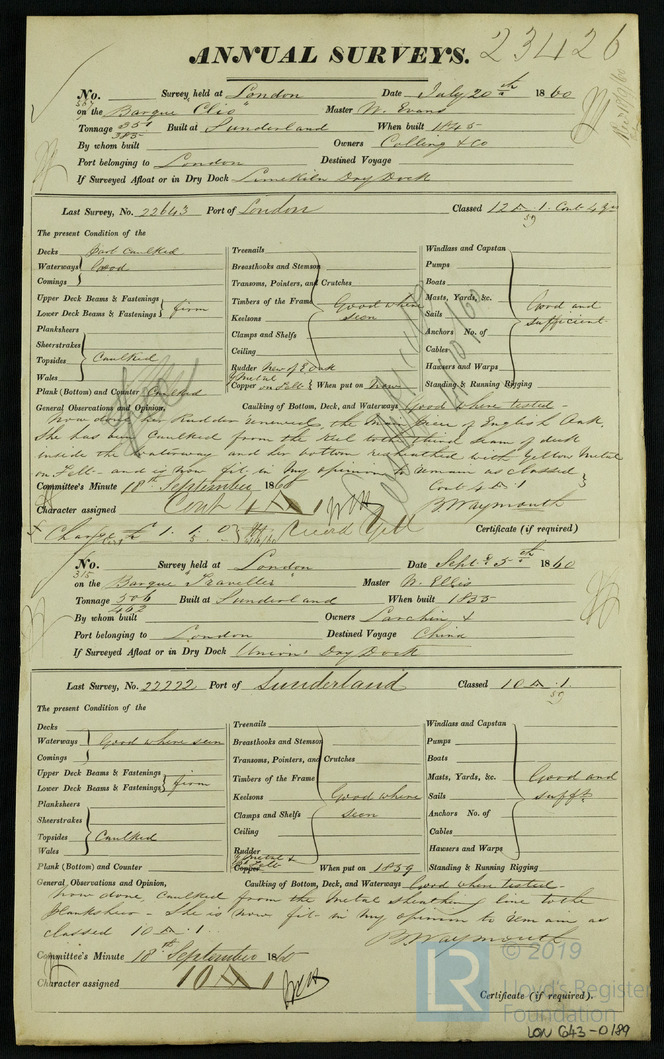 ANNUAL SURVEYS. 23426
No. 567 Survey held at London Date July 20th 1860
on the Barque "Clio" Master W. Evans
Tonnage 351 385 Built at Sunderland When built 1845
By whom built Owners Colling & Co
Port belonging to London Destined Voyage
If Surveyed Afloat or in Dry Dock Limekiln Dry Dock
Last Survey, No. 22643 Port of London Classed 12 A. 1. Cont. 4 yrs 59
The present Condition of the
Decks Part Caulked
Waterways Good
Comings
Upper Deck Beams & Fastenings
Lower Deck Beams & Fastenings firm
Planksheers
Sheerstrakes
Topsides Caulked
Wales
Plank (Bottom) and Counter Caulked
Treenails
Breasthooks and Stemson
Transoms, Pointers, and Crutches
Timbers of the Frame Good where
Keelsons seen
Clamps and Shelfs
Ceiling
Rudder New of E Oak
Y Metal
Copper on Felt When put on New
Windlass and Capstan
Pumps
Boats
Masts, Yards, &c. Good and
Sails sufficient
Anchors No. of
Cables
Hawsers and Warps
Standing & Running Rigging
General Observations and Opinion, Caulking of Bottom, Deck, and Waterways Good where tested
Now done, her Rudder renewed, the Main Piece of English Oak.
She has been Caulked from the Keel to the third seam of deck
inside the Waterway and her bottom resheathed with Yellow Metal
on Felt - and is now fit in my opinion to remain as classed
Cont 4 A. 1
Committee's Minute 18th September 1860
B Waymouth
Character assigned Cont 4 A 1
Charge £ 1. 1. 0 Certificate (if required)
No. 315 Survey held at London Date Sept. 5th 1860
on the Barque "Traveller" Master W. Ellis
Tonnage 506 462 Built at Sunderland When built 1855
By whom built Owners Larchin &
Port belonging to London Destined Voyage China
If Surveyed Afloat or in Dry Dock Union Dry Dock
Last Survey, No. 22222 Port of Sunderland Classed 10 A. 1 59
The present Condition of the
Decks
Waterways Good where seen
Comings
Upper Deck Beams & Fastenings
Lower Deck Beams & Fastenings firm
Planksheers
Sheerstrakes
Topsides Caulked
Wales
Plank (Bottom) and Counter
Treenails
Breasthooks and Stemson
Transoms, Pointers, and Crutches
Timbers of the Frame
Keelsons Good where
Clamps and Shelfs seen
Ceiling
Rudder
Y Metal &
Copper Felt When put on 1859
Windlass and Capstan
Pumps
Boats
Masts, Yards, &c. Good and
Sails sufft.
Anchors No. of
Cables
Hawsers and Warps
Standing & Running Rigging
General Observations and Opinion, Caulking of Bottom, Deck, and Waterways Good where tested
Now done, Caulked from the Metal sheathing line to the
Planksheer - She is now fit in my opinion to remain as
classed 10 A. 1
B Waymouth
Committee's Minute 18th September 1860
Character assigned 10 A 1
Certificate (if required).
© 2019
LR Lloyd's Register
Foundation
LON 643-0189